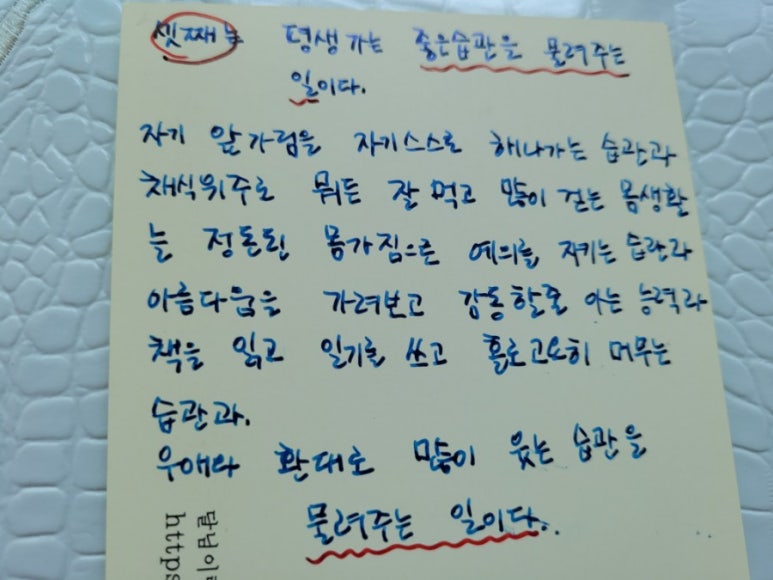 셋째는 평생가는 좋은습관을 물려주는
일이다.
자기 앞가림을 자기스스로 해나가는 습관과
채식위주로 뭐든 잘 먹고 많이 걷는 몸생활
늘 정돈된 몸가짐으로 예의를 지키는 습관과
아름다움을 가려보고 감동할줄 아는 능력과
책을 읽고 일기를 쓰고 홀로고요히 머무는
습관과.
우애와 환대로 많이 웃는 습관을
물려주는 일이다..
달님이
https